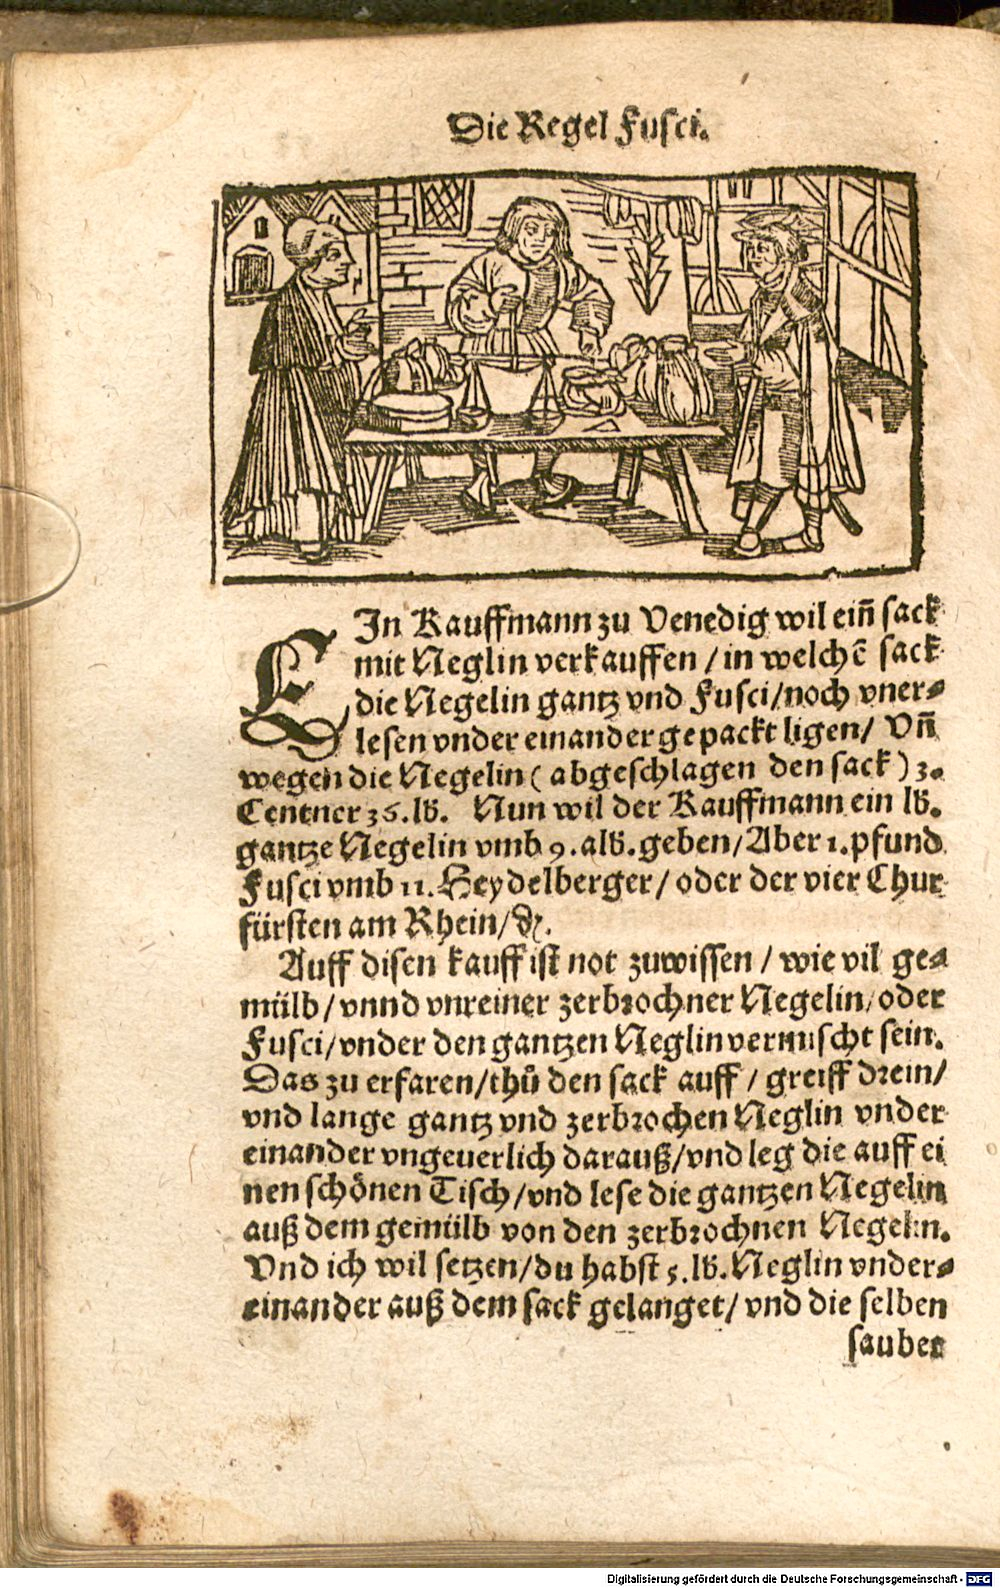 Die Regel Fusci.
EIn Kauffmann zu Venedig wil ein̄ sack
mit Neglin verkauffen / in welchē sack
die Negelin gantz vnd Fusci / noch vner⸗
lesen vnder einander gepackt ligen / Vn̄
wegen die Negelin ( abgeschlagen den sack ) 3.
Centner 36. lb. Nun wil der Kauffmann ein lb.
gantze Negelin vmb 9. alb. geben / Aber 1. pfund
Fusci vmb 11. Heydelberger / oder der vier Chur
fürsten am Rhein / ꝛc.
Auff disen kauff ist not zuwissen / wie vil ge⸗
mülb / vnnd vnreiner zerbrochner Negelin / oder
Fusci / vnder den gantzen Neglin vermischt sein.
Das zu erfaren / thů den sack auff / greiff drein /
vnd lange gantz vnd zerbrochen Neglin vnder
einander vngeuerlich darauß / vnd leg die auff ei
nen schönen Tisch / vnd lese die gantzen Negelin
auß dem gemülb von den zerbrochnen Negelin.
Vnd ich wil setzen / du habst 5. lb. Neglin vnder⸗
einander auß dem sack gelanget / vnd die selben
sauber
Digitalisierung gefördert durch die Deutsche Forschungsgemeinschaft - DFG